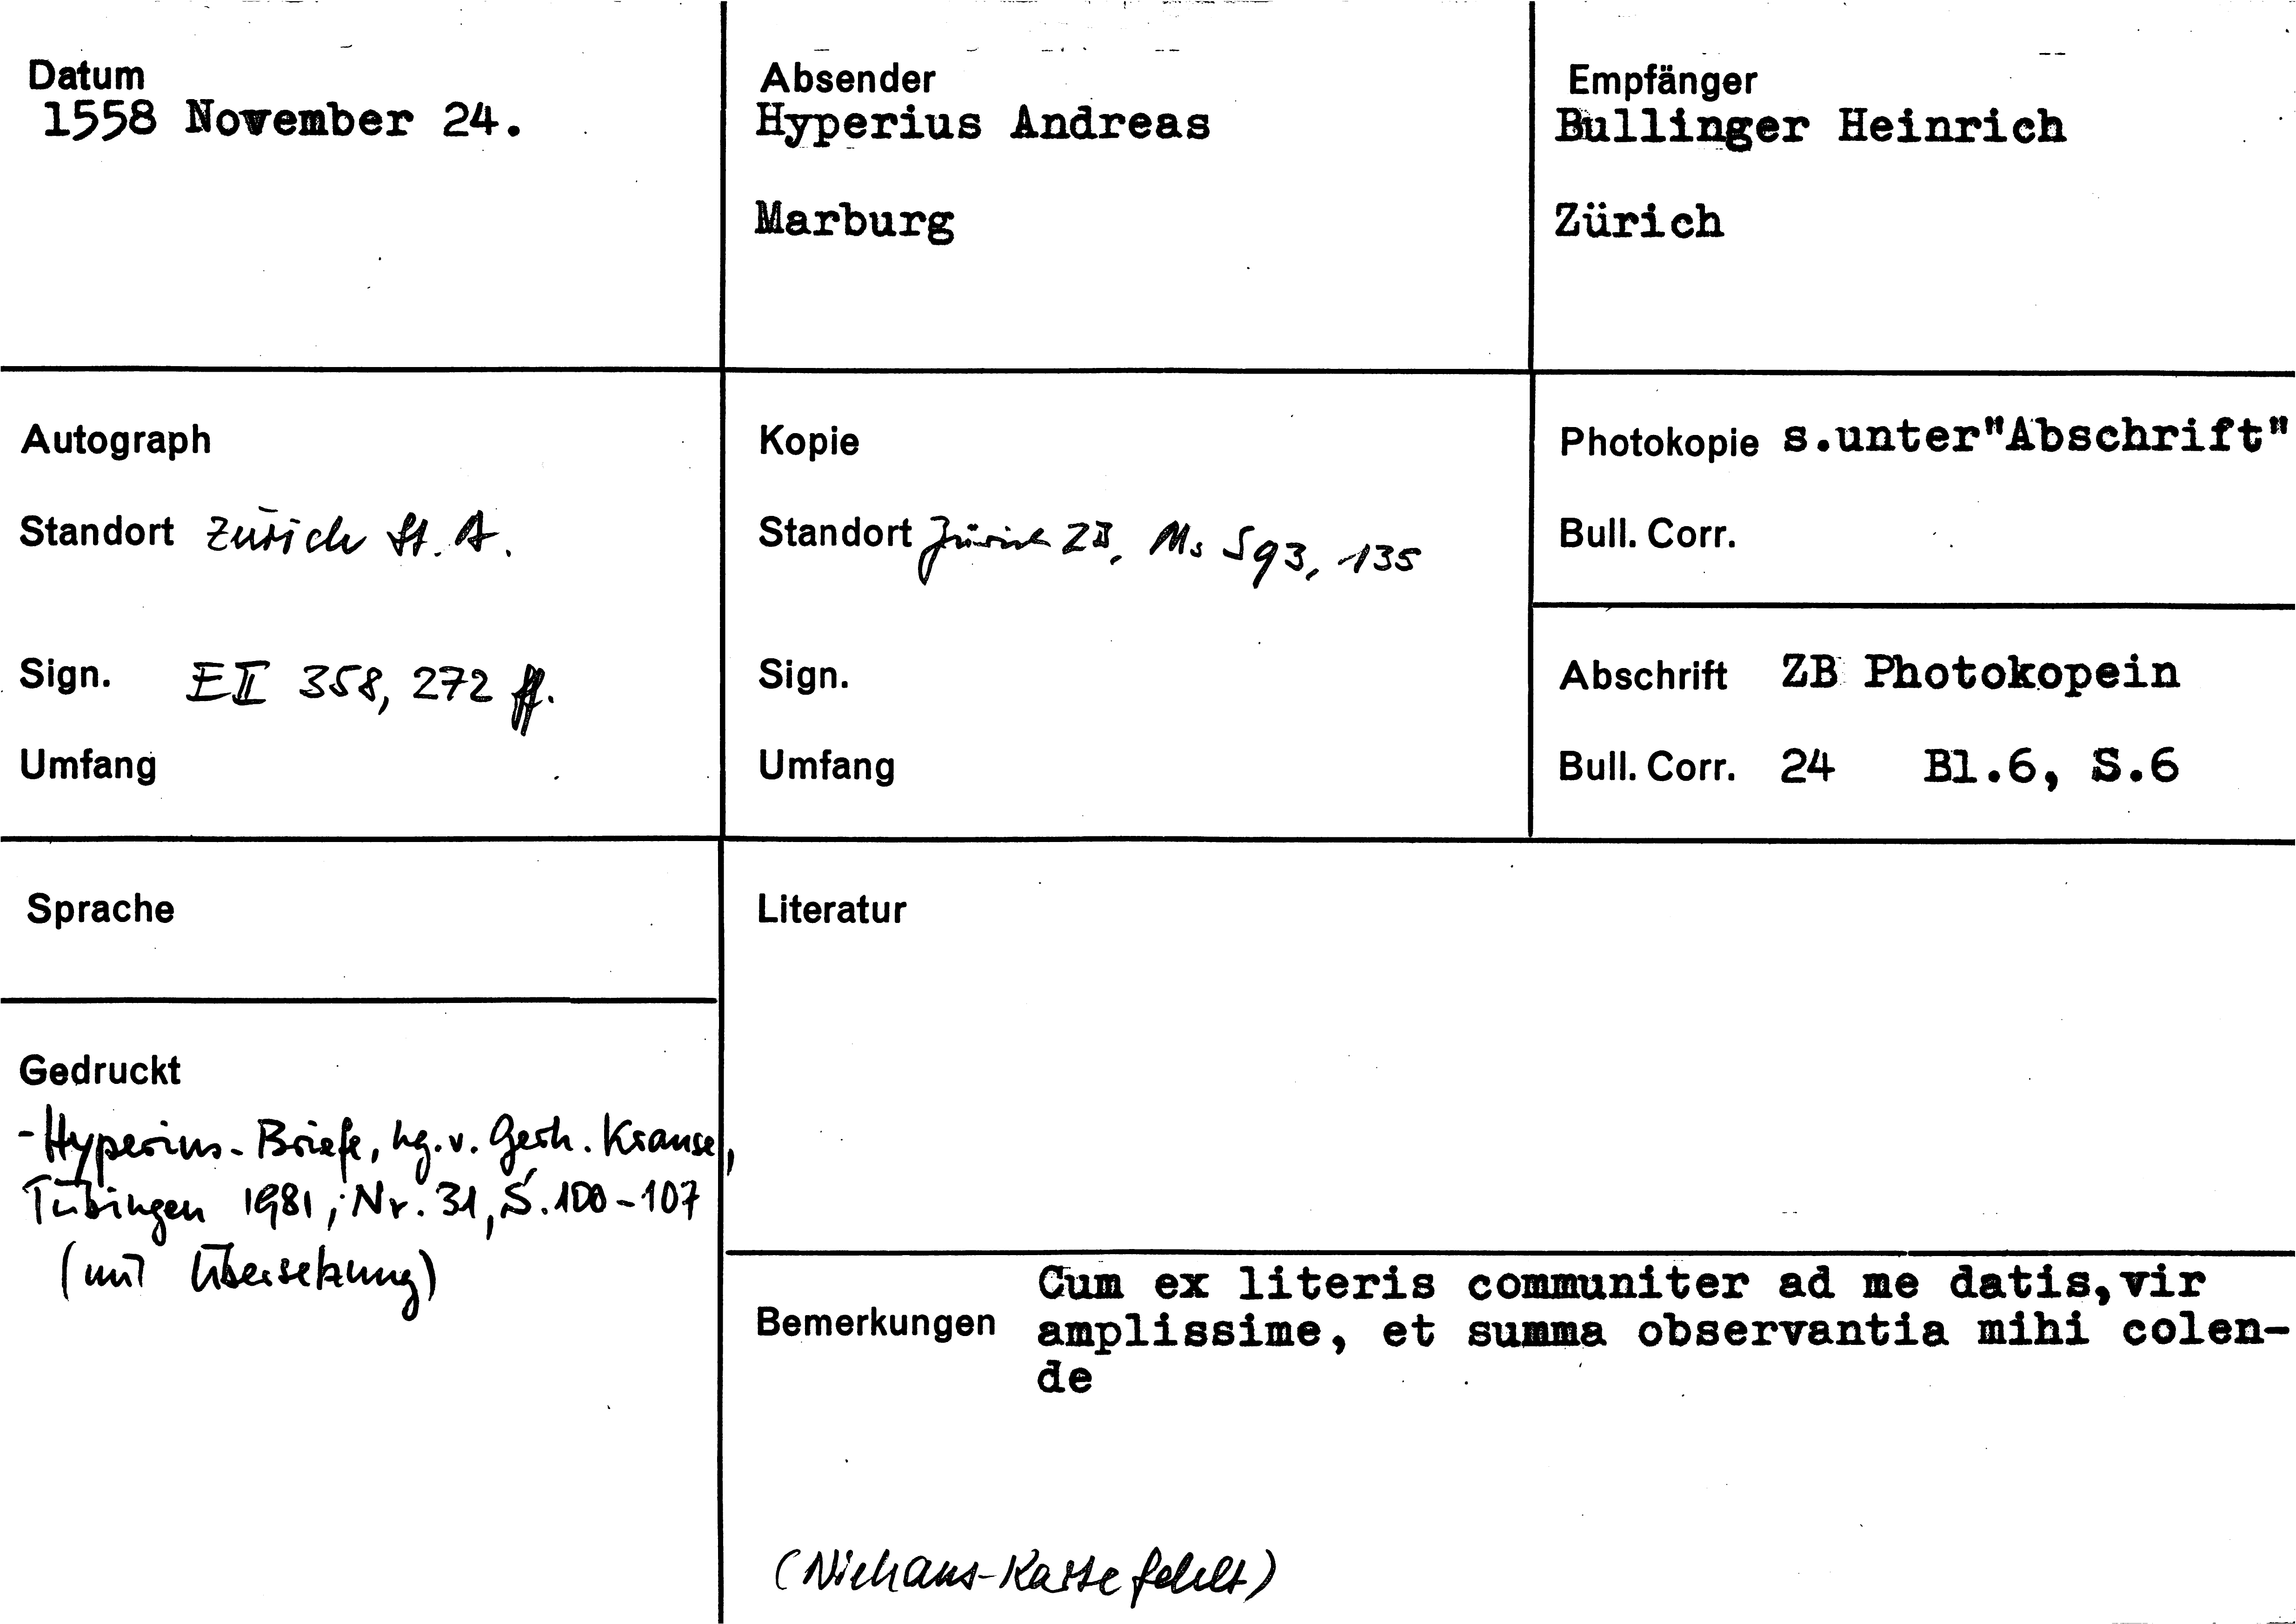 Datum
1558 November 24.
Absender
Hyperius Andreas
Marburg
Empfänger
Bullinger Heinrich
Zürich
Autograph
Standort Zürich St. A.
Sign. EII 358, 272 ff.
Umfang
Kopie
Standort Zürich ZB, Ms S93, 135
Sign.
Umfang
Photokopie s.unter"Abschrift"
Bull. Corr.
Abschrift ZB Photokopein
Bull. Corr. 24 Bl.6, S.6
Sprache
Gedruckt
- Hyperius-Briefe, hg. v. Gerh. Krause,
Tübingen 1981, Nr. 31, S. 100-107
(mit Übersetzung)
Literatur
Bemerkungen
Cum ex literis communiter ad me datis,vir
amplissime, et summa observantia mihi colen-
de
(Niehaus-Karte fehlt)